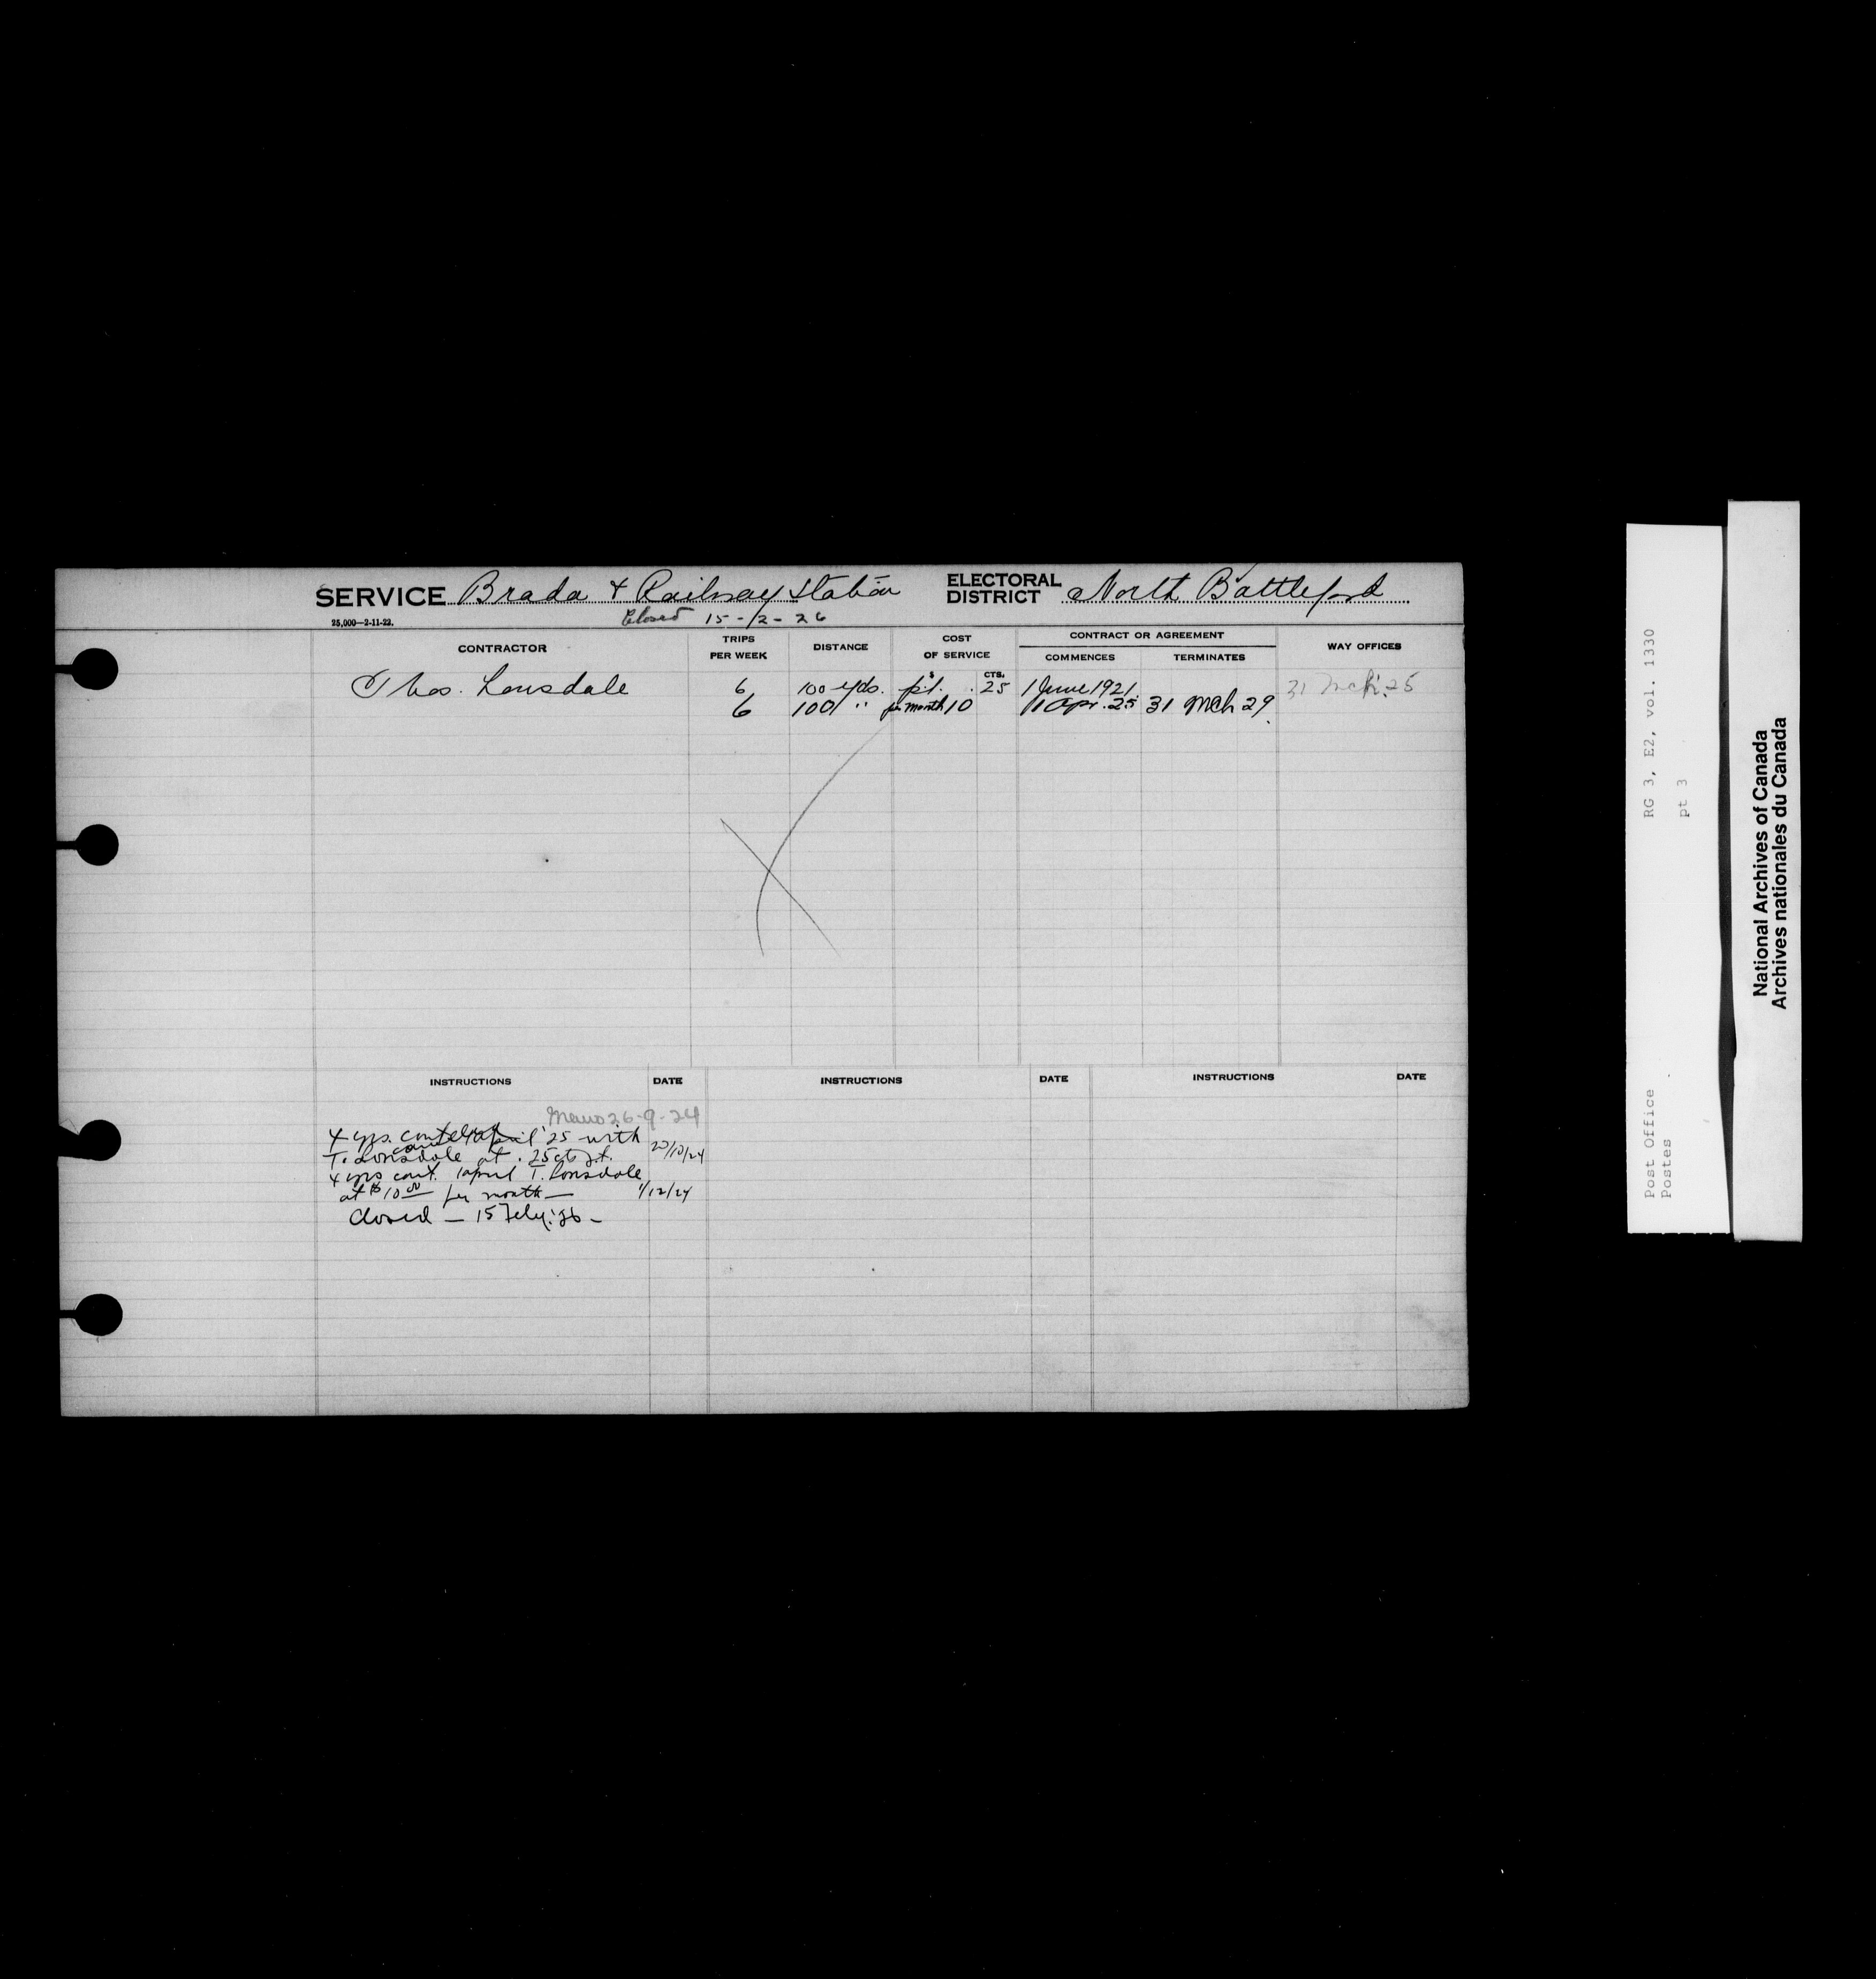 SERVICE Brada & Railway Station ELECTORAL DISTRICT North Battleford
25,000—2-11-22. Closed 15-2-26
CONTRACTOR TRIPS PER WEEK DISTANCE COST OF SERVICE CONTRACT OR AGREEMENT COMMENCES TERMINATES WAY OFFICES
$ CTS.
Thos. Lonsdale 6 100 yds. p.t. .25 1 June 1921. 31 Mch. 25
6 100 " per month 10 1 Apr. 25 31 Mch 29
INSTRUCTIONS DATE INSTRUCTIONS DATE INSTRUCTIONS DATE
Memo 26-9-24
4 yrs. April '25 with
T. Lonsdale at .25 cts p.t. /10/24
4 yrs cont. 1 April T. Lonsdale
at $10.00 per month — 1/12/24
Closed — 15 Feby. '26 -
RG 3, E2, vol. 1330
pt 3
Post Office
Postes
National Archives of Canada
Archives nationales du Canada